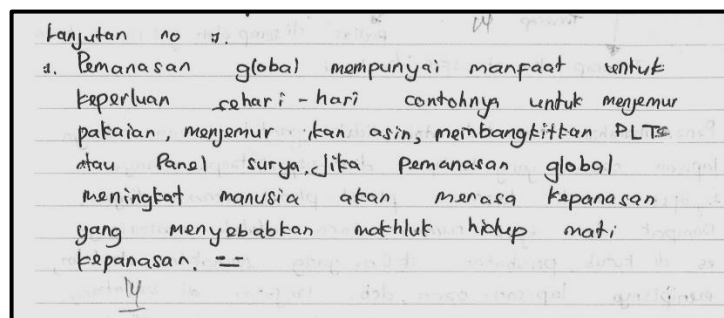 Lanjutan no 1.
1. Pemanasan global mempunyai manfaat untuk
keperluan sehari-hari contohnya untuk menjemur
pakaian, menjemur ikan asin, membangkitkan PLTS
atau Panel surya. Jika pemanasan global
meningkat manusia akan merasa kepanasan
yang menyebabkan makhluk hidup mati
kepanasan.
14